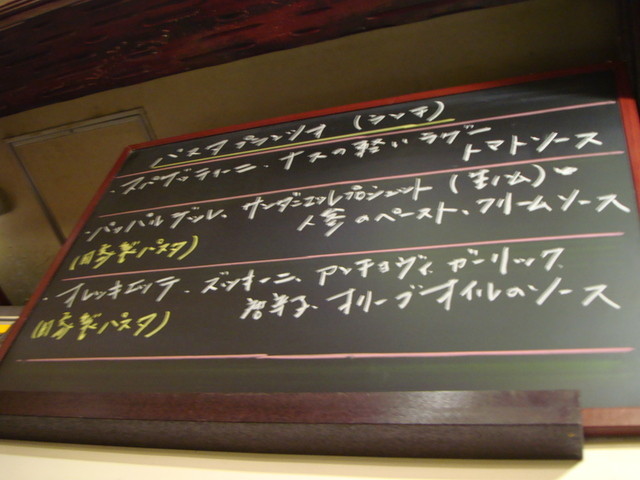 パスタ プランゾオ (ランチ)
・スパゲッティーニ、ナスの軽いラグー
トマトソース
・パッパルデッレ、サンダニエレプロシュット(生ハム)
人参のペースト、クリームソース
(自家製パスタ)
・オレッキエッテ、ズッキーニ、アンチョヴィ、ガーリック
唐辛子、オリーブオイルのソース
(自家製パスタ)